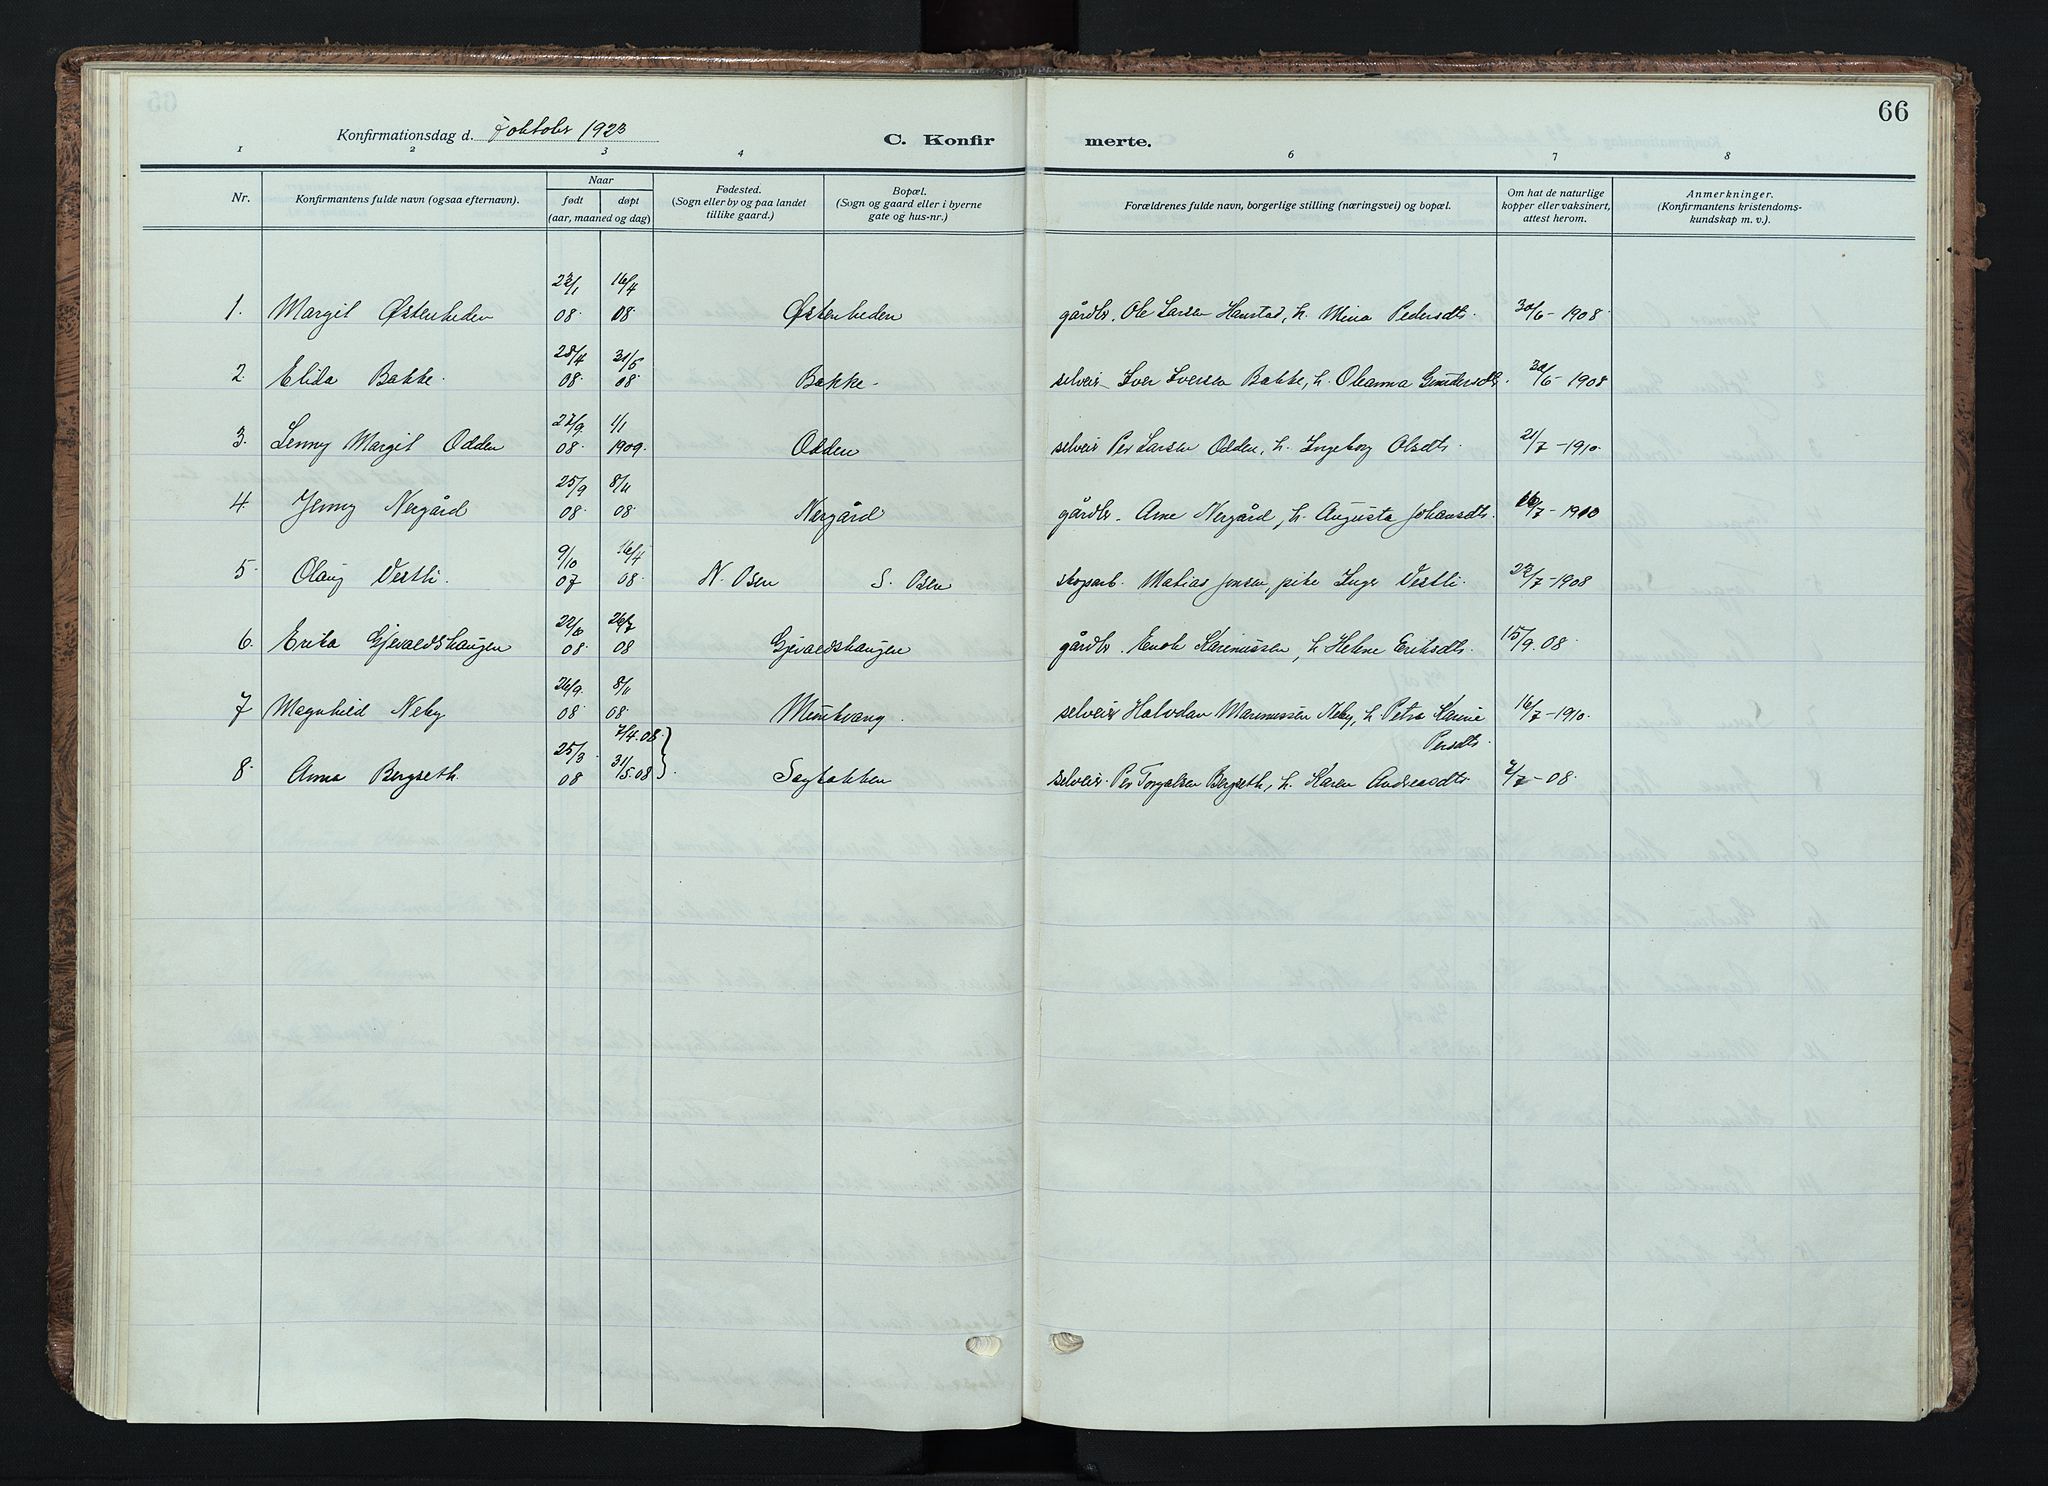 66
Konfirmationsdag d. 7 oktober 1923
C. Konfirmerte.
1 2 3 4 6 7 8
Nr.
Konfirmantens fulde navn (ogsaa efternavn).
Naar
født døpt
(aar, maaned og dag)
Fødested.
(Sogn eller by og paa landet
tillike gaard.)
Bopæl.
(Sogn og gaard eller i byerne
gate og hus-nr.)
Forældrenes fulde navn, borgerlige stilling (næringsvei) og bopæl.
Om hat de naturlige
kopper eller vaksinert,
attest herom.
Anmerkninger.
(Konfirmantens kristendoms-
kundskap m. v.)
1. Margit Østenheden 22/1 08 16/4 08 Østenheden gårdbr. Ole Larsen Hanstad, h. Mina Pedersdtr. 30/6 - 1908
2. Elida Bakke. 28/4 08. 31/5 08. Bakke. selveier Iver Iversen Bakke, h. Oleanna Gundersdtr. 30/6 - 1908
3. Jenny Margit Odden 27/9 08. 1/1 1909. Odden selveier Per Larsen Odden, h. Ingeborg Olsdtr. 21/7 - 1910
4. Jenny Nergård 25/9 08. 8/11 08. Nergård gårdbr. Arne Nergård, h. Augusta Johansdtr. 16/7 - 1910
5. Olaug Vestli. 9/10 07 16/4 08. N. Osen S. Osen skogsarb. Matias Jonsen, pike Inger Vestli. 23/7 - 1908
6. Erika Gjevaldshaugen 22/6 08. 26/7 08 Gjevaldshaugen gårdbr. Enok Karenussen, h. Helene Eriksdtr. 15/9. 08.
7 Magnhild Neby 26/9. 08 8/11 08. selveier Halvdan Marenussen Neby, h. Petra Karine 16/7 - 1910.
Persdtr.
8. Anna Bergseth. 25/3 08 7/4. 08. 31/5. 08 Sagbakken selveier Per Torgalsen Bergseth, h. Karen Andreasdtr. 2/7 - 08.